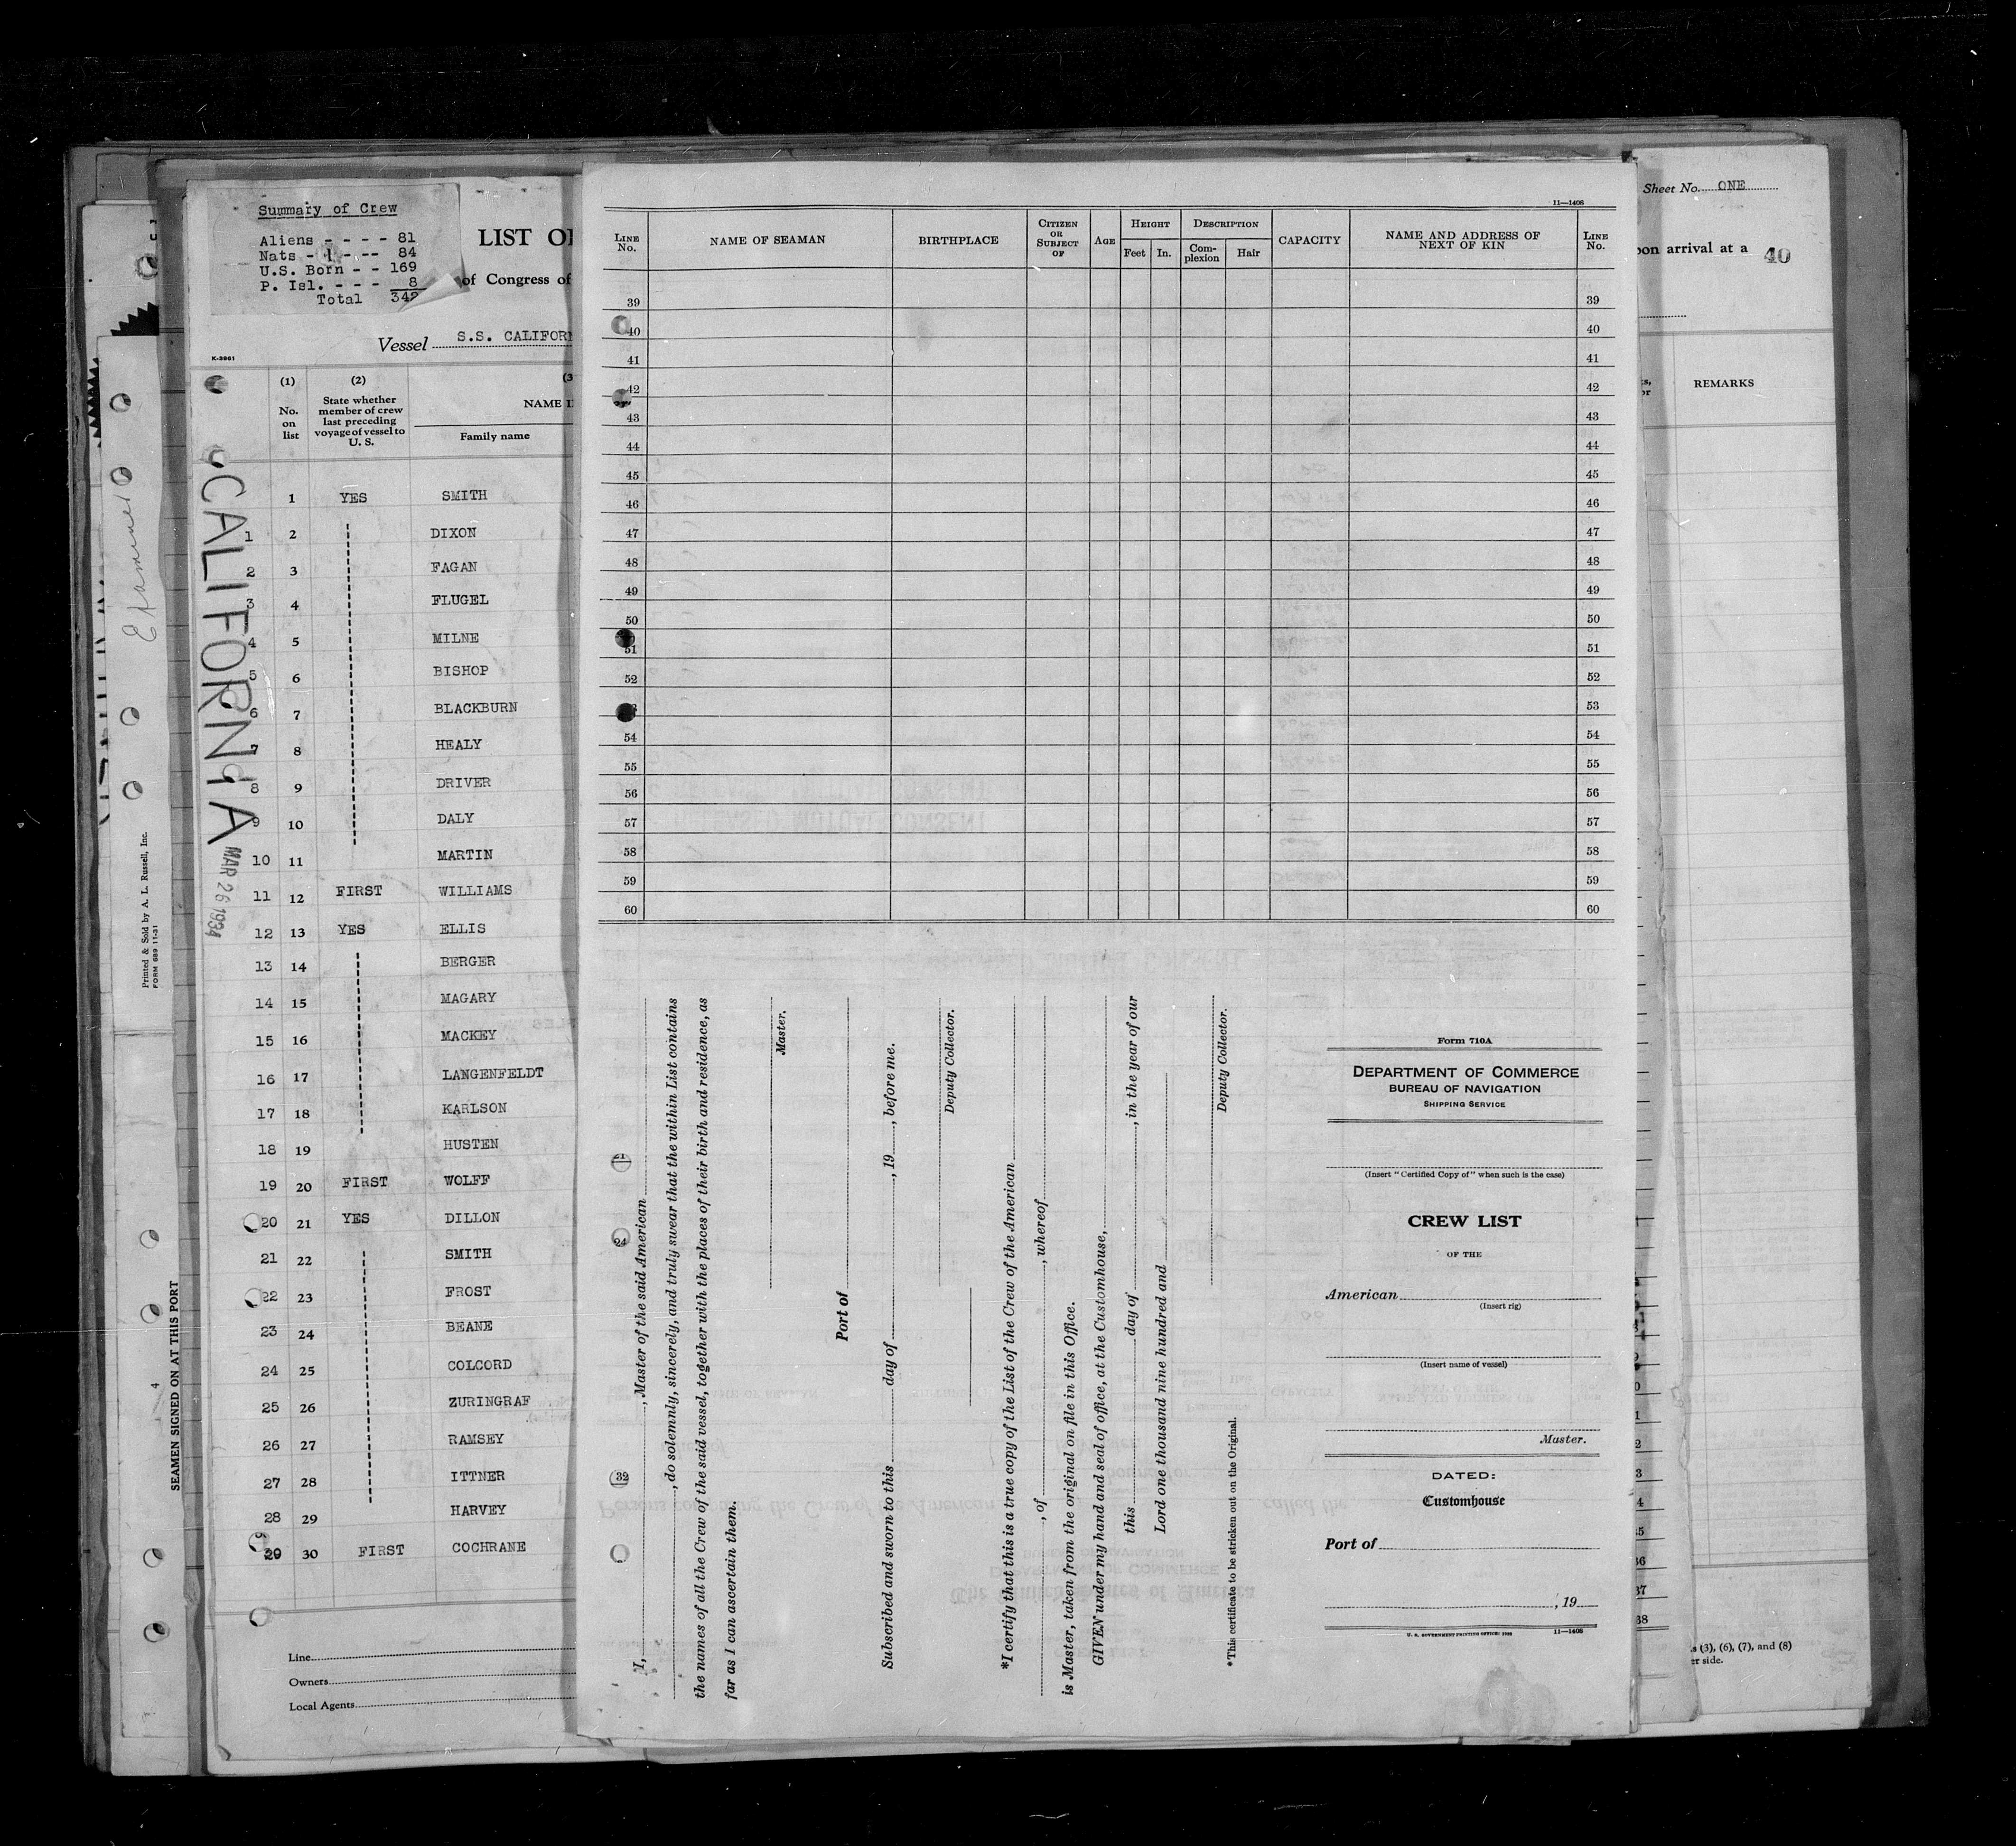 Summary of Crew
Aliens - - - - 81
Nats - 1 - -- 84
U.S. Born - - 169
P. Isl. - - - 8
Total 342
LIST OF
of Congress of
Vessel S.S. CALIFORN
K-3961
(1) (2) (3
No. on list
State whether member of crew last preceding voyage of vessel to U. S.
NAME I
Family name
CALIFORNIA
MAR 26 1934
1 YES SMITH
1 2 DIXON
2 3 FAGAN
3 4 FLUGEL
4 5 MILNE
5 6 BISHOP
6 7 BLACKBURN
7 8 HEALY
8 9 DRIVER
9 10 DALY
10 11 MARTIN
11 12 FIRST WILLIAMS
12 13 YES ELLIS
13 14 BERGER
14 15 MAGARY
15 16 MACKEY
16 17 LANGENFELDT
17 18 KARLSON
18 19 HUSTEN
19 20 FIRST WOLFF
20 21 YES DILLON
21 22 SMITH
22 23 FROST
23 24 BEANE
24 25 COLCORD
25 26 ZURINGRAF
26 27 RAMSEY
27 28 ITTNER
28 29 HARVEY
29 30 FIRST COCHRANE
Line
Owners
Local Agents
Examined
Printed & Sold by A. L. Russell, Inc.
FORM 689 11-31
4
SEAMEN SIGNED ON AT THIS PORT
11—1406
LINE No.
NAME OF SEAMAN
BIRTHPLACE
CITIZEN OR SUBJECT OF
AGE
HEIGHT
Feet In.
DESCRIPTION
Complexion Hair
CAPACITY
NAME AND ADDRESS OF NEXT OF KIN
LINE No.
39 39
40 40
41 41
42 42
43 43
44 44
45 45
46 46
47 47
48 48
49 49
50 50
51 51
52 52
53
54 54
55 55
56 56
57 57
58 58
59 59
60 60
I, , Master of the said American
, do solemnly, sincerely, and truly swear that the within List contains
the names of all the Crew of the said vessel, together with the places of their birth and residence, as
far as I can ascertain them.
Master.
Port of
Subscribed and sworn to this day of , 19 , before me.
Deputy Collector.
*I certify that this is a true copy of the List of the Crew of the American
, of , whereof
is Master, taken from the original on file in this Office.
GIVEN under my hand and seal of office, at the Customhouse,
this day of , in the year of our
Lord one thousand nine hundred and
Deputy Collector.
*This certificate to be stricken out on the Original.
21
24
32
Form 710A
DEPARTMENT OF COMMERCE
BUREAU OF NAVIGATION
SHIPPING SERVICE
(Insert "Certified Copy of" when such is the case)
CREW LIST
OF THE
American
(Insert rig)
(Insert name of vessel)
Master.
DATED:
Customhouse
Port of
, 19
U. S. GOVERNMENT PRINTING OFFICE: 11—1406
Sheet No. ONE
pon arrival at a 40
REMARKS
37
38
s (3), (6), (7), and (8)
er side.